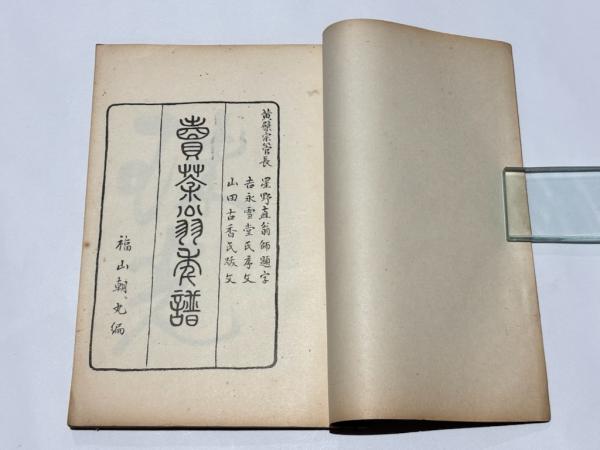 黄檗宗管長
星野直翁師題字
吉永雪堂氏序文
山田古香氏跋文
賣茶翁年譜
福山朝丸編